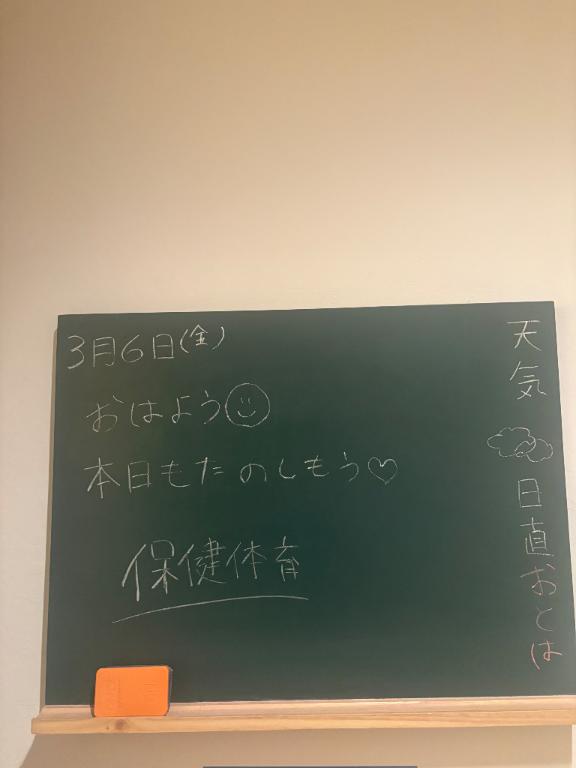 3月6日(金)
おはよう
本日もたのしもう♡
保健体育
天気
日直おとは